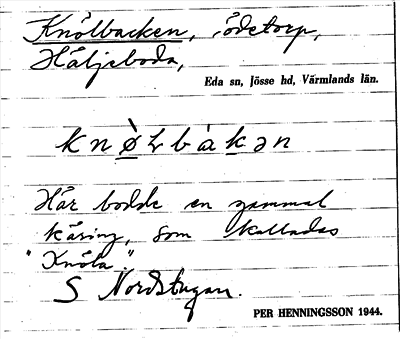 Knölbacken, ödetorp,
Häljeboda,
Eda sn, Jösse hd, Värmlands län.
k n ø̀ ɫ b à k ə n
Här bodde en gammal
käring, som kallades
"Knöla".
S Nordstugan.
PER HENNINGSSON 1944.